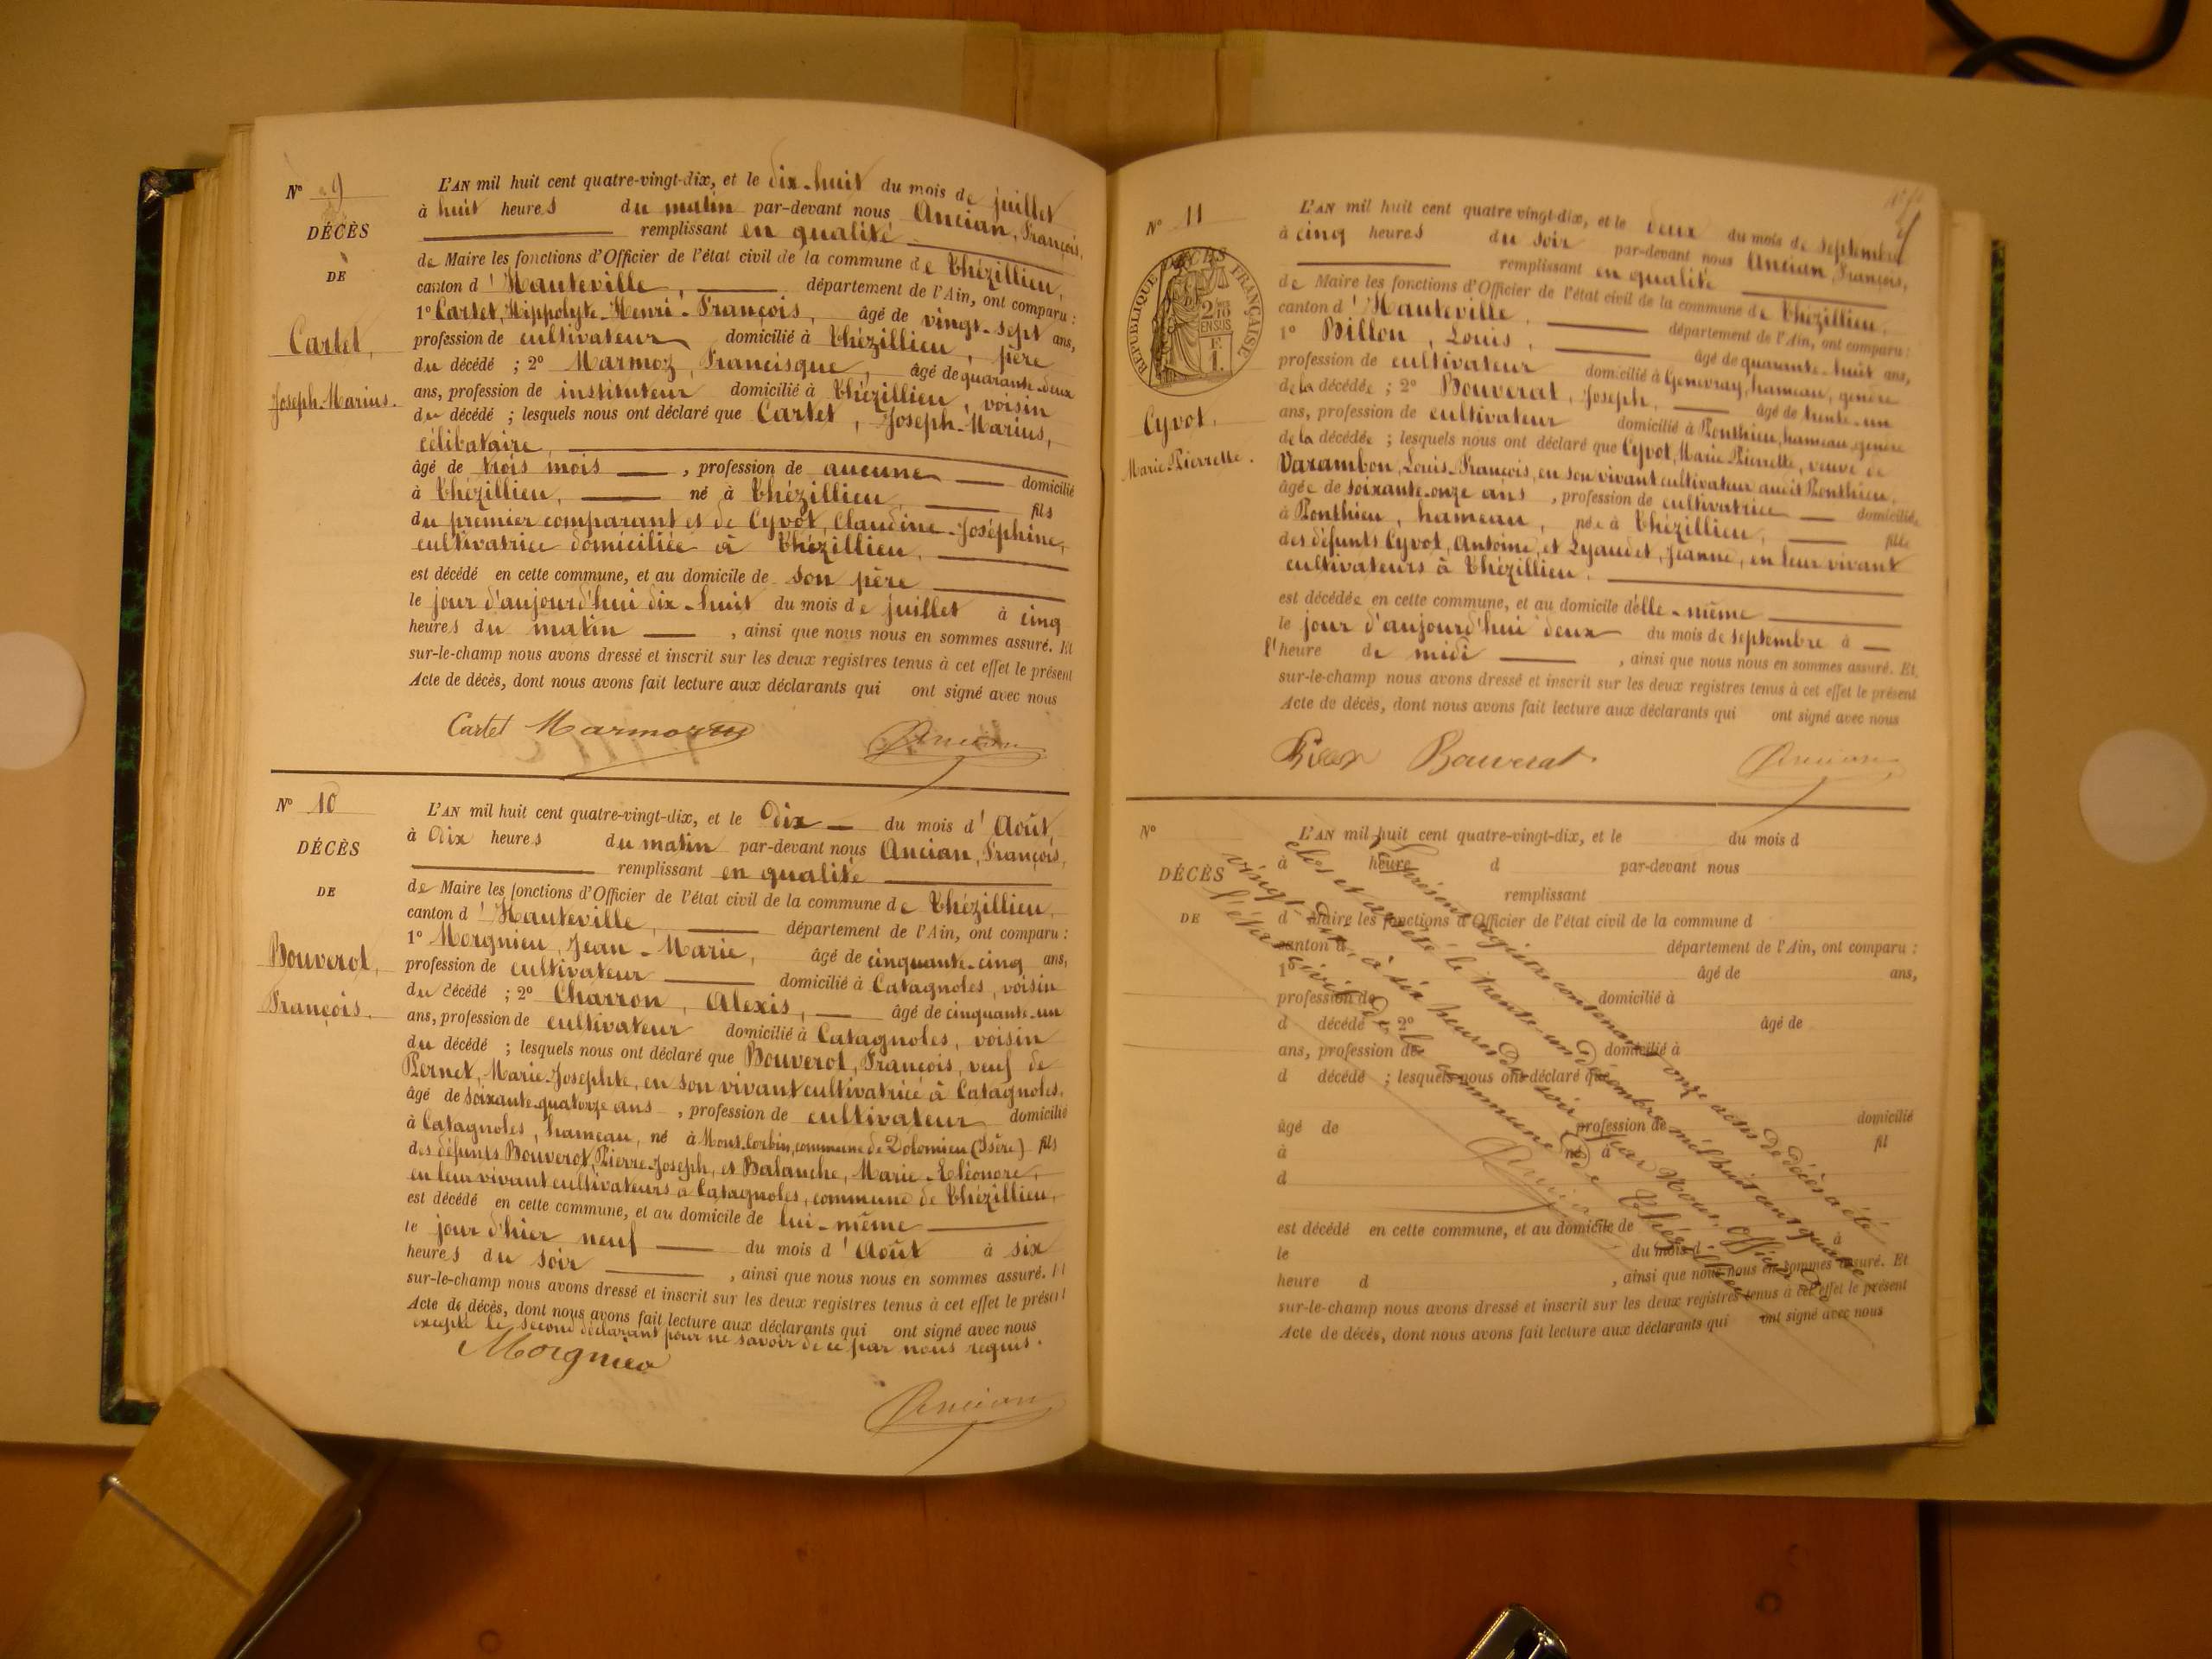 N° 9
DÉCÈS
DE
Cartet,
Joseph-Marius.
L'AN mil huit cent quatre-vingt-dix, et le dix-huit du mois de juillet
à huit heures du matin par-devant nous Ancian, François,
remplissant en qualité
de Maire les fonctions d'Officier de l'état civil de la commune de Thézillieu,
canton d'Hauteville, département de l'Ain, ont comparu :
1° Cartet, Hippolyte-Henri-François, âgé de vingt-sept ans,
profession de cultivateur domicilié à Thézillieu, père
du décédé ; 2° Marmoz, Francisque, âgé de quarante-deux
ans, profession de instituteur domicilié à Thézillieu, voisin
du décédé ; lesquels nous ont déclaré que Cartet, Joseph-Marius,
célibataire,
âgé de trois mois , profession de aucune domicilié
à Thézillieu, né à Thézillieu, fils
du premier comparant et de Cyvot, Claudine-Joséphine,
cultivatrice domiciliée à Thézillieu,
est décédé en cette commune, et au domicile de son père
le jour d'aujourd'hui dix-huit du mois de juillet à cinq
heures du matin , ainsi que nous nous en sommes assuré. Et
sur-le-champ nous avons dressé et inscrit sur les deux registres tenus à cet effet le présent
Acte de décès, dont nous avons fait lecture aux déclarants qui ont signé avec nous
Cartet Marmoz Ancian
N° 10
DÉCÈS
DE
Bouverot,
François.
L'AN mil huit cent quatre-vingt-dix, et le dix du mois d'Août,
à dix heures du matin par-devant nous Ancian, François,
remplissant en qualité
de Maire les fonctions d'Officier de l'état civil de la commune de Thézillieu,
canton d'Hauteville, département de l'Ain, ont comparu :
1° Morgnieu, Jean-Marie, âgé de cinquante-cinq ans,
profession de cultivateur domicilié à Catagnoles, voisin
du décédé ; 2° Charron, Alexis, âgé de cinquante-un
ans, profession de cultivateur domicilié à Catagnoles, voisin
du décédé ; lesquels nous ont déclaré que Bouverot, François, veuf de
Pernet, Marie-Josephte, en son vivant cultivatrice à Catagnoles,
âgé de soixante-quatorze ans , profession de cultivateur domicilié
à Catagnoles, hameau, né à Mont-Corbin, commune de Dolomieu (Isère) fils
des défunts Bouverot, Pierre-Joseph, et Balanche, Marie-Eléonore,
en leur vivant cultivateurs à Catagnoles, commune de Thézillieu,
est décédé en cette commune, et au domicile de lui-même
le jour d'hier neuf du mois d'Août à six
heures du soir , ainsi que nous nous en sommes assuré. Et
sur-le-champ nous avons dressé et inscrit sur les deux registres tenus à cet effet le présent
Acte de décès, dont nous avons fait lecture aux déclarants qui ont signé avec nous
excepté le second déclarant pour ne savoir de ce par nous requis.
Morgnieu
Ancian
N° 11
RÉPUBLIQUE FRANÇAISE
DÉCÈS
2/10
EN SUS
F
1.
Cyvot,
Marie Pierrette.
L'AN mil huit cent quatre vingt-dix, et le deux du mois de septembre
à cinq heures du soir par-devant nous Ancian, François,
remplissant en qualité
de Maire les fonctions d'Officier de l'état civil de la commune de Thézillieu,
canton d'Hauteville, département de l'Ain, ont comparu :
1° Billon, Louis, âgé de quarante-huit ans,
profession de cultivateur domicilié à Genevray, hameau, gendre
de la décédée ; 2° Bouverat, Joseph, âgé de trente-un
ans, profession de cultivateur domicilié à Ponthieu, hameau, gendre
de la décédée ; lesquels nous ont déclaré que Cyvot, Marie Pierrette, veuve de
Varambon, Louis-François, en son vivant cultivateur audit Ponthieu,
âgée de soixante-onze ans , profession de cultivatrice domiciliée
à Ponthieu, hameau, née à Thézillieu, fille
des défunts Cyvot, Antoine, et Lyaudet, Jeanne, en leur vivant
cultivateurs à Thézillieu,
est décédée en cette commune, et au domicile d'elle-même
le jour d'aujourd'hui deux du mois de septembre à
l'heure de midi , ainsi que nous nous en sommes assuré. Et
sur-le-champ nous avons dressé et inscrit sur les deux registres tenus à cet effet le présent
Acte de décès, dont nous avons fait lecture aux déclarants qui ont signé avec nous
Bouverat Ancian
N°
DÉCÈS
DE
L'AN mil huit cent quatre-vingt-dix, et le du mois d
à heure d par-devant nous
remplissant
d Maire les fonctions d'Officier de l'état civil de la commune d
canton d département de l'Ain, ont comparu :
1° âgé de ans,
profession de domicilié à
d décédé ; 2° âgé de
ans, profession de domicilié à
d décédé ; lesquels nous ont déclaré que
âgé de profession de domicilié
à né à fil
d
est décédé en cette commune, et au domicile de
le du mois d à
heure d , ainsi que nous nous en sommes assuré. Et
sur-le-champ nous avons dressé et inscrit sur les deux registres tenus à cet effet le présent
Acte de décès, dont nous avons fait lecture aux déclarants qui ont signé avec nous
Le présent registre contenant onze actes de décès a été
clos et arrêté le trente-un Décembre mil huit cent quatre
vingt-dix, à six heures du soir par Nous, Officier de
l'état civil de la commune de Thézillieu
Ancian